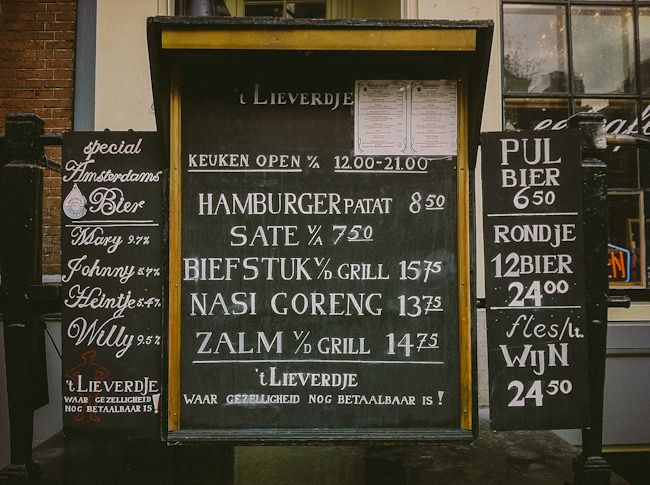 special
Amsterdams
Bier
Mary 9.7%
Johnny 5.7%
Heintje 5.4%
Willy 9.5%
't LIEVERDJE
WAAR GEZELLIGHEID
NOG BETAALBAAR IS!
't LIEVERDJE
KEUKEN OPEN V/A 12.00-21.00
HAMBURGER PATAT 8 50
SATE V/A 7 50
BIEFSTUK V/D GRILL 15 75
NASI GORENG 13 75
ZALM V/D GRILL 14 75
't LIEVERDJE
WAAR GEZELLIGHEID NOG BETAALBAAR IS!
PUL
BIER
6 50
RONDJE
12 BIER
24 00
fles/Lt.
WIJN
24 50